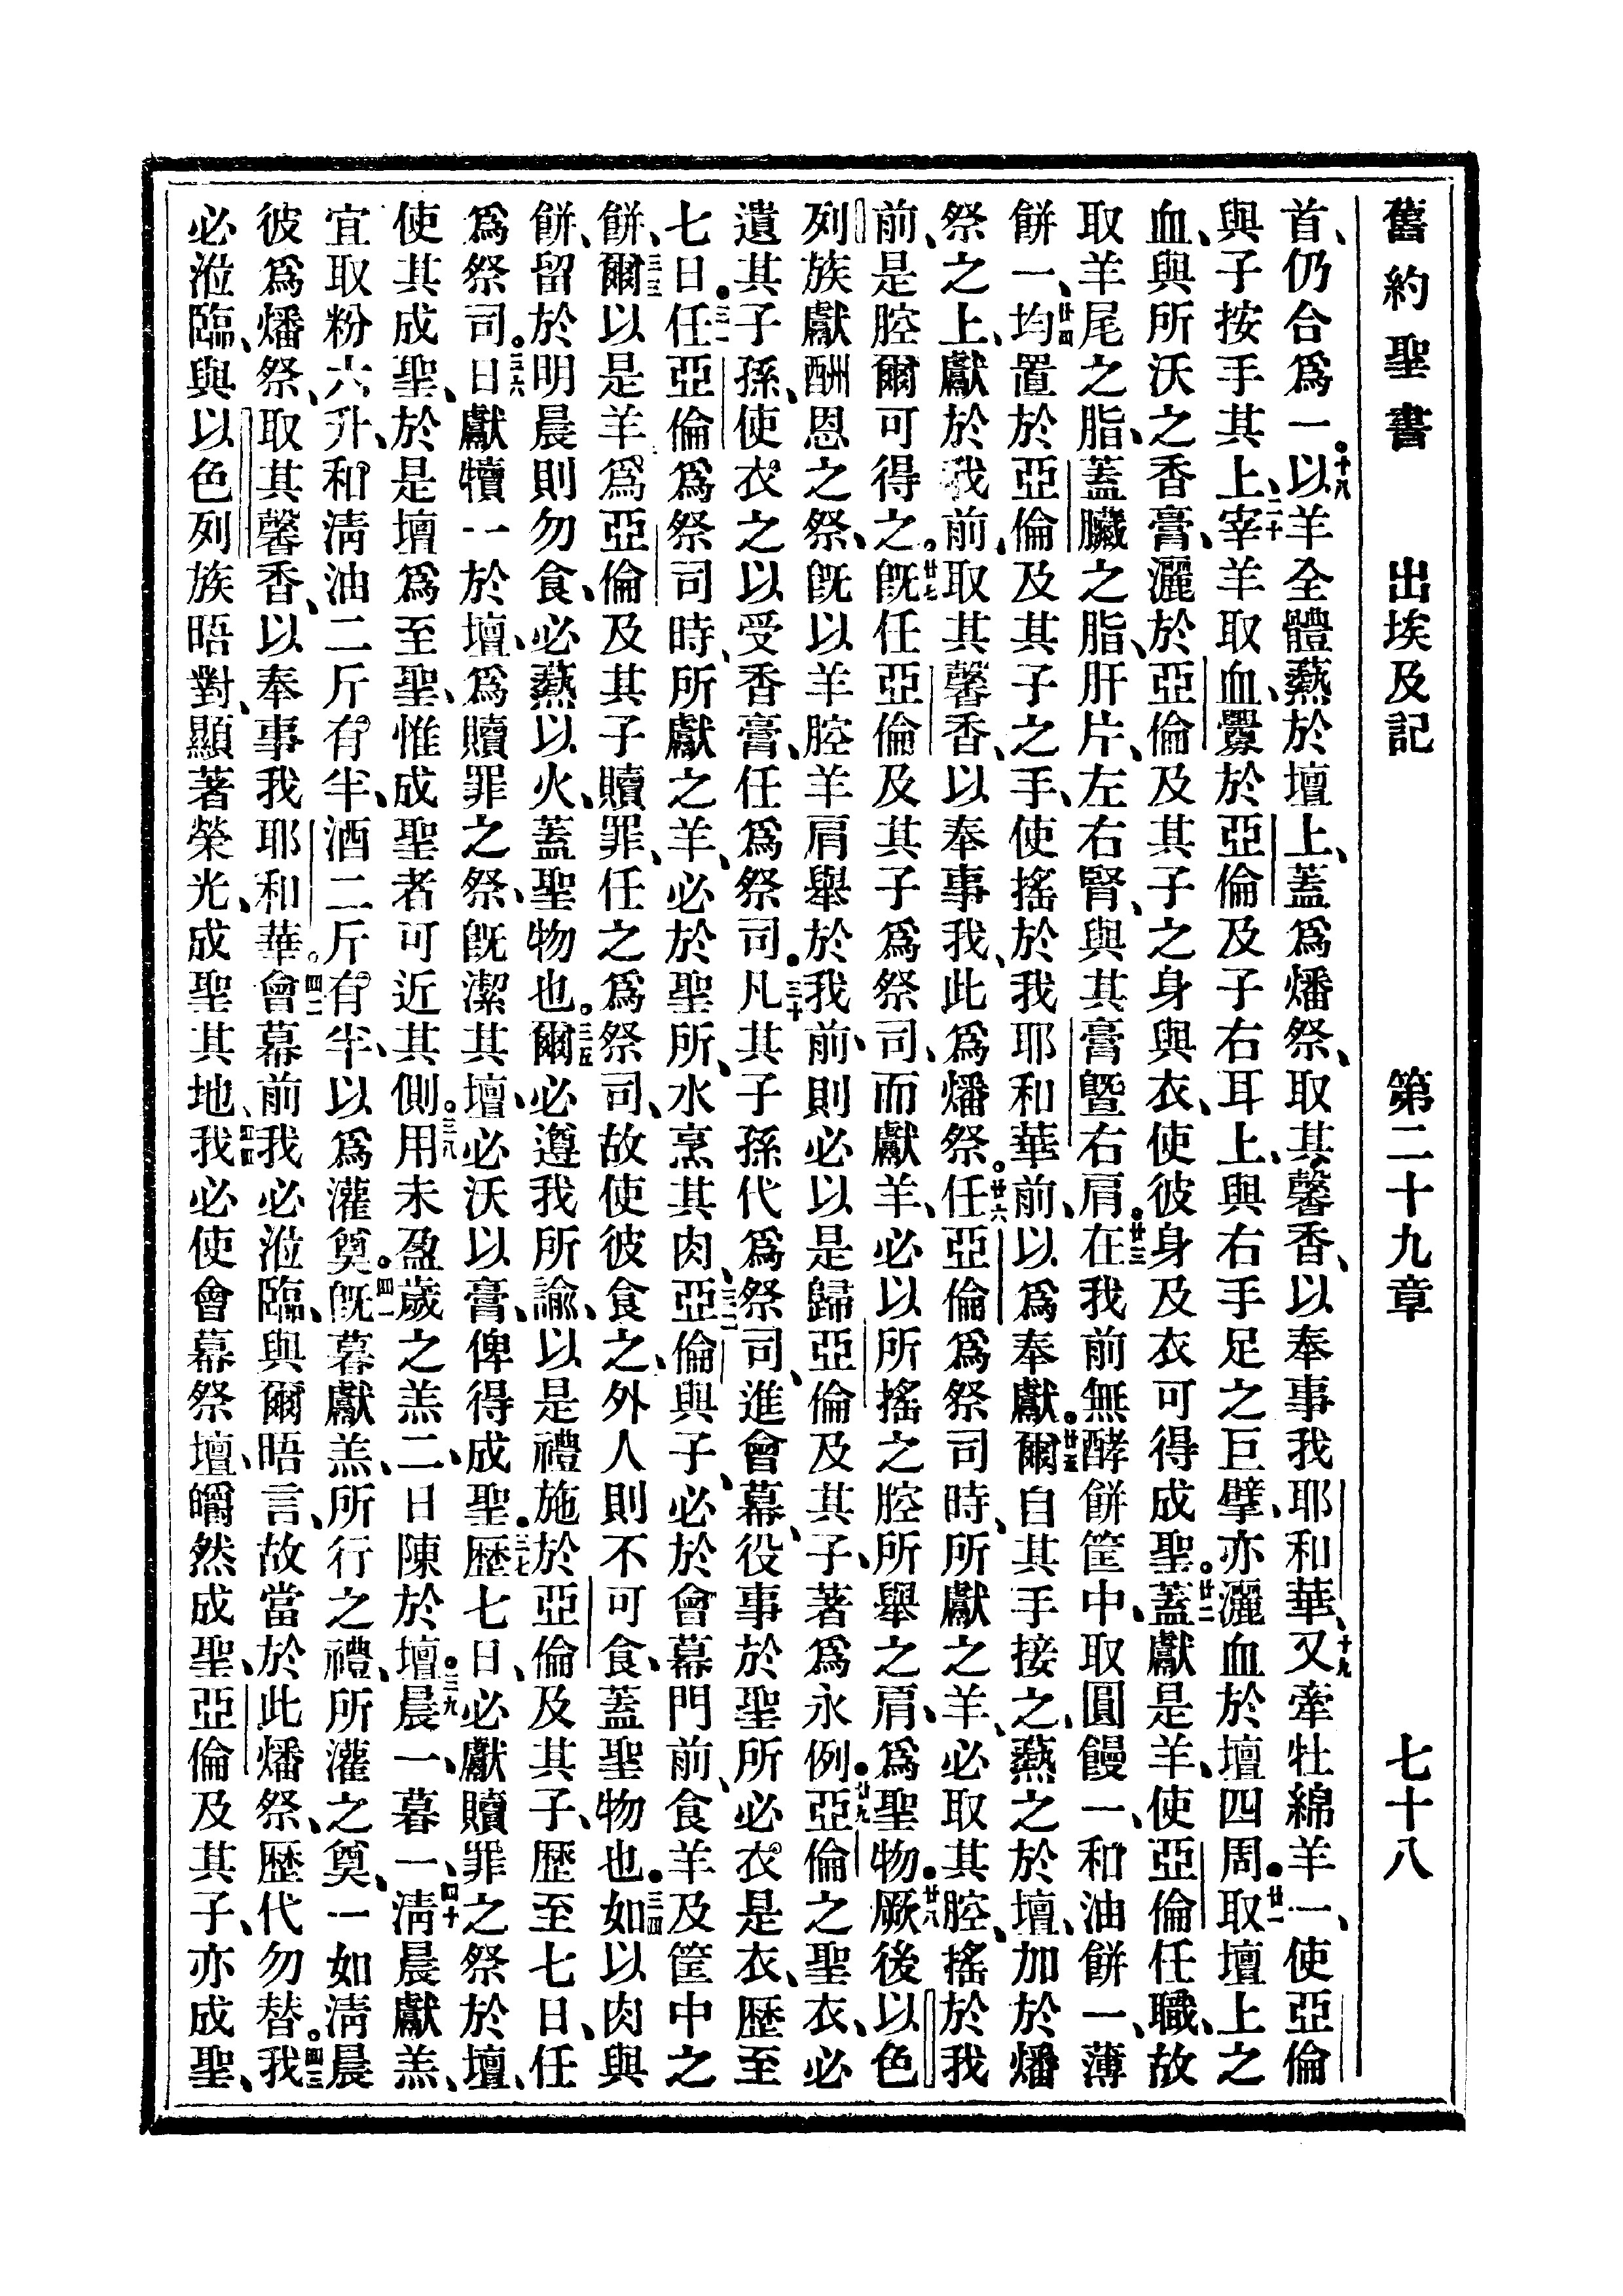 舊約聖書 出埃及記 第二十九章 七十八
首、仍合爲一。十八以羊全體爇於壇上、蓋爲燔祭、取其馨香、以奉事我耶和華、十九又牽牡綿羊一、使亞倫
與子按手其上、二十宰羊取血、釁於亞倫及子右耳上、與右手足之巨擘、亦灑血於壇四周。廿一取壇上之
血、與所沃之香膏、灑於亞倫及其子之身與衣、使彼身及衣可得成聖。廿二蓋獻是羊、使亞倫任職、故
取羊尾之脂、蓋臟之脂、肝片、左右腎、與其膏曁右肩。廿三在我前無酵餅筐中、取圓饅一、和油餅一、薄
餅一、廿四均置於亞倫及其子之手、使搖於我耶和華前、以爲奉獻。廿五爾自其手接之、爇之於壇、加於燔
祭之上、獻於我前、取其馨香、以奉事我、此爲燔祭。廿六任亞倫爲祭司時、所獻之羊、必取其腔、搖於我
前、是腔爾可得之。廿七旣任亞倫及其子爲祭司、而獻羊、必以所搖之腔所舉之肩、爲聖物。廿八厥後以色
列族獻酬恩之祭、旣以羊腔羊肩舉於我前、則必以是歸亞倫及其子、著爲永例。廿九亞倫之聖衣、必
遺其子孫、使衣之以受香膏、任爲祭司。三十凡其子孫代爲祭司、進會幕、役事於聖所、必衣是衣、歷至
七日。三一任亞倫爲祭司時、所獻之羊、必於聖所、水烹其肉、三二亞倫與子、必於會幕門前、食羊及筐中之
餅、三三爾以是羊、爲亞倫及其子贖罪、任之爲祭司、故使彼食之、外人則不可食、蓋聖物也。三四如以肉與
餅、留於明晨則勿食、必爇以火、蓋聖物也。三五爾必遵我所諭、以是禮施於亞倫及其子、歷至七日、任
爲祭司。三六日獻犢一於壇、爲贖罪之祭、旣潔其壇、必沃以膏、俾得成聖。三七歷七日、必獻贖罪之祭於壇、
使其成聖、於是壇爲至聖、惟成聖者可近其側。三八用未盈歲之羔二、日陳於壇。三九晨一、暮一、四十淸晨獻羔、
宜取粉六升、和淸油二斤有半、酒二斤有半、以爲灌奠。四一旣暮獻羔、所行之禮、所灌之奠、一如淸晨
彼爲燔祭、取其馨香、以奉事我耶和華。四二會幕前我必涖臨、與爾晤言、故當於此燔祭、歷代勿替。四三我
必涖臨、與以色列族晤對、顯著榮光、成聖其地、四四我必使會幕祭壇、皭然成聖、亞倫及其子、亦成聖、